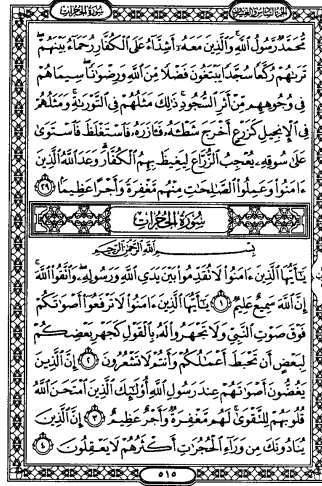 سُورَةُ الحُجُرَاتِ
الجُزْءُ السَّادِسُ وَالعِشْرُونَ
مُّحَمَّدٌ رَّسُولُ اللَّهِ وَالَّذِينَ مَعَهُ أَشِدَّاءُ عَلَى الْكُفَّارِ رُحَمَاءُ بَيْنَهُمْ
تَرَىٰهُمْ رُكَّعًا سُجَّدًا يَبْتَغُونَ فَضْلًا مِّنَ اللَّهِ وَرِضْوَٰنًا سِيمَاهُمْ
فِي وُجُوهِهِم مِّنْ أَثَرِ السُّجُودِ ذَٰلِكَ مَثَلُهُمْ فِي التَّوْرَىٰةِ وَمَثَلُهُمْ
فِي الْإِنجِيلِ كَزَرْعٍ أَخْرَجَ شَطْـَٔهُ فَـَٔازَرَهُ فَاسْتَغْلَظَ فَاسْتَوَىٰ
عَلَىٰ سُوقِهِ يُعْجِبُ الزُّرَّاعَ لِيَغِيظَ بِهِمُ الْكُفَّارَ وَعَدَ اللَّهُ الَّذِينَ
ءَامَنُوا وَعَمِلُوا الصَّٰلِحَٰتِ مِنْهُم مَّغْفِرَةً وَأَجْرًا عَظِيمًا ٢٩
سُورَةُ الحُجُرَاتِ
بِسْمِ اللَّهِ الرَّحْمَٰنِ الرَّحِيمِ
يَٰٓأَيُّهَا الَّذِينَ ءَامَنُوا لَا تُقَدِّمُوا بَيْنَ يَدَيِ اللَّهِ وَرَسُولِهِ وَاتَّقُوا اللَّهَ
إِنَّ اللَّهَ سَمِيعٌ عَلِيمٌ ١ يَٰٓأَيُّهَا الَّذِينَ ءَامَنُوا لَا تَرْفَعُوا أَصْوَٰتَكُمْ
فَوْقَ صَوْتِ النَّبِيِّ وَلَا تَجْهَرُوا لَهُ بِالْقَوْلِ كَجَهْرِ بَعْضِكُمْ
لِبَعْضٍ أَن تَحْبَطَ أَعْمَٰلُكُمْ وَأَنتُمْ لَا تَشْعُرُونَ ٢ إِنَّ الَّذِينَ
يَغُضُّونَ أَصْوَٰتَهُمْ عِندَ رَسُولِ اللَّهِ أُولَٰئِكَ الَّذِينَ امْتَحَنَ اللَّهُ
قُلُوبَهُمْ لِلتَّقْوَىٰ لَهُم مَّغْفِرَةٌ وَأَجْرٌ عَظِيمٌ ٣ إِنَّ الَّذِينَ
يُنَادُونَكَ مِن وَرَاءِ الْحُجُرَٰتِ أَكْثَرُهُمْ لَا يَعْقِلُونَ ٤
٥١٥